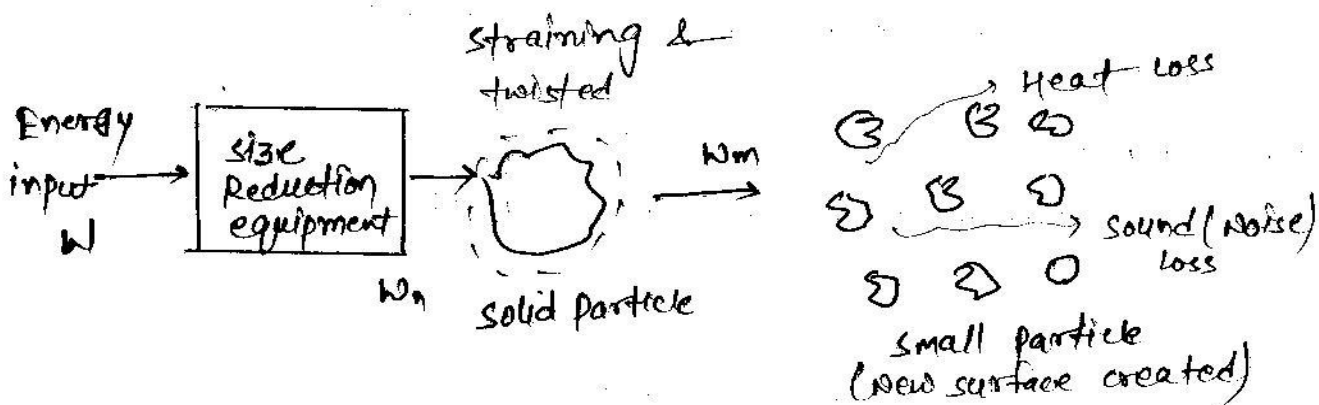 Energy
input
W
size
Reduction
equipment
Wn
straining &
twisted
solid particle
Wm
Heat loss
sound (Noise)
loss
small particle
(New surface created)